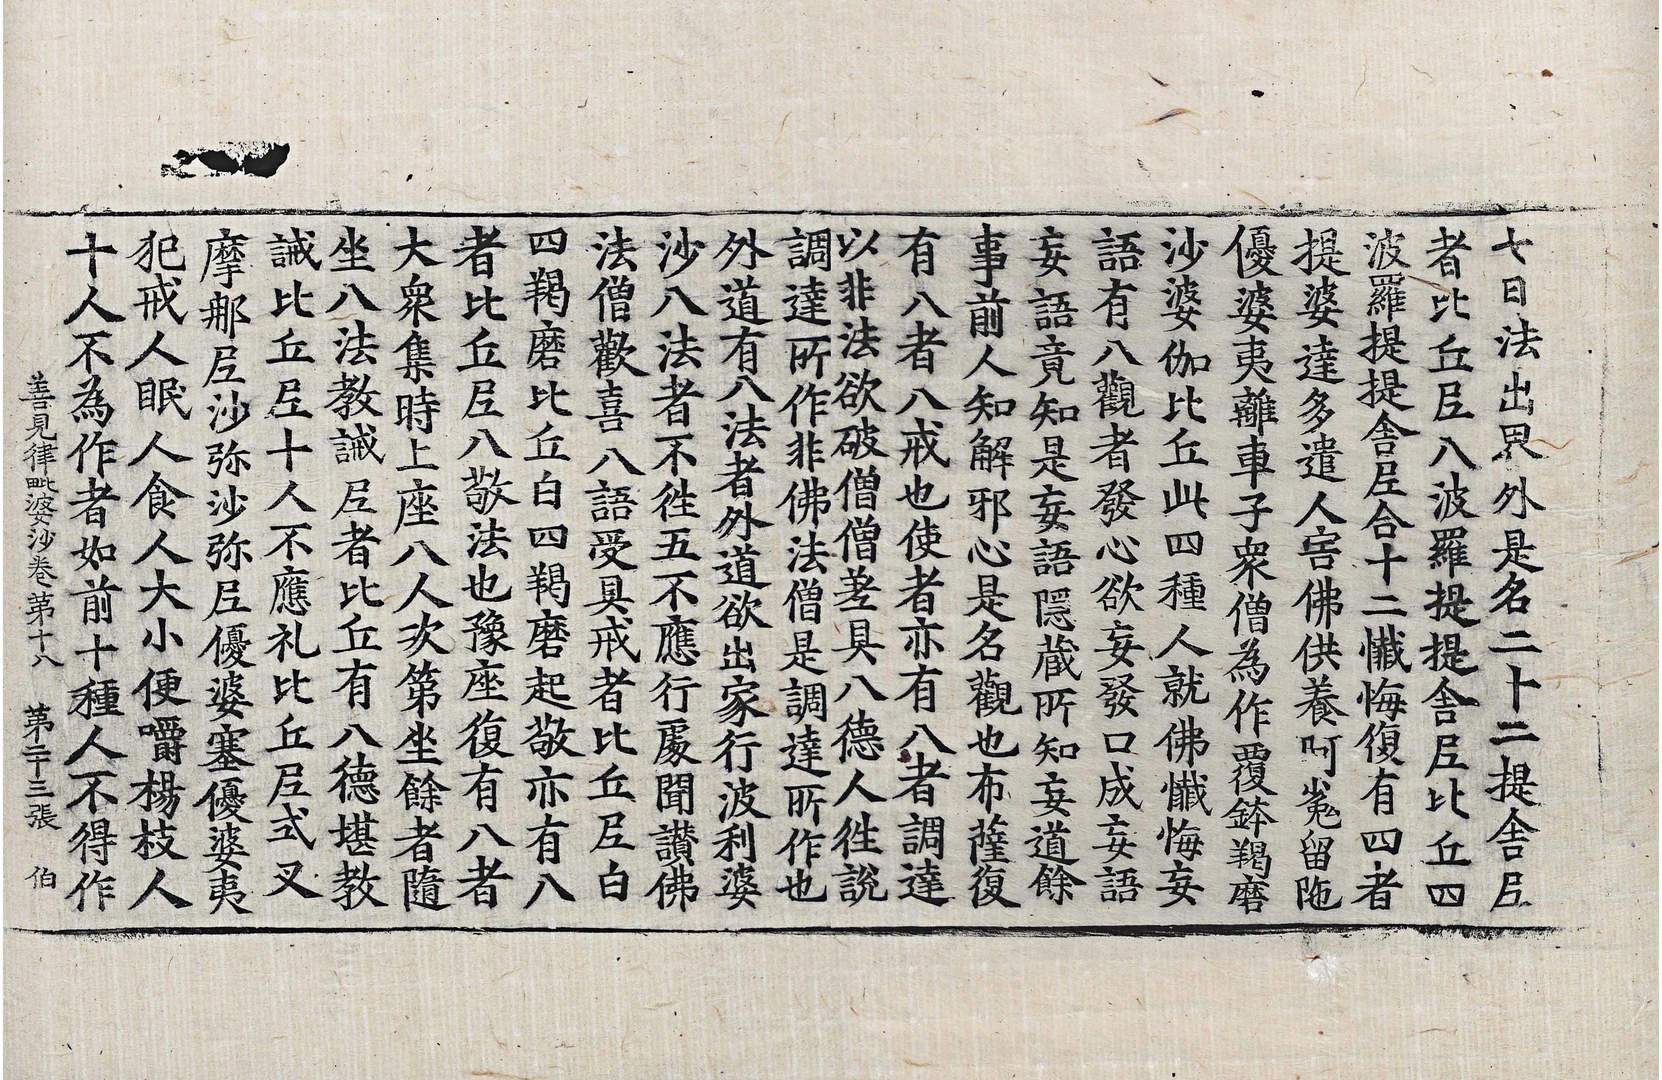 七日法出界外是名二十二提舍尼
者比丘尼八波羅提提舍尼比丘四
波羅提提舍尼合十二懺悔復有四者
提婆達多遣人害佛供養呵嵬留陁
優婆夷離車子衆僧為作覆鉢羯磨
沙婆伽比丘此四種人就佛懺悔妄
語有八觀者發心欲妄發口成妄語
妄語竟知是妄語隱蔵所知妄道餘
事前人知解邪心是名觀也布薩復
有八者八戒也使者亦有八者調達
以非法欲破僧僧差具八德人徃説
調達所作非佛法僧是調達所作也
外道有八法者外道欲出家行波利婆
沙八法者不徃五不應行處聞讃佛
法僧歡喜八語受具戒者比丘尼白
四羯磨比丘白四羯磨起敬亦有八
者比丘尼八敬法也豫座復有八者
大衆集時上座八人次第坐餘者隨
坐八法教誡尼者比丘有八德堪教
誡比丘尼十人不應礼比丘尼式叉
摩那尼沙弥沙弥尼優婆塞優婆夷
犯戒人眠人食人大小便嚼楊枝人
十人不為作者如前十種人不得作
善見律毗婆沙卷第十八　第二十三張　伯